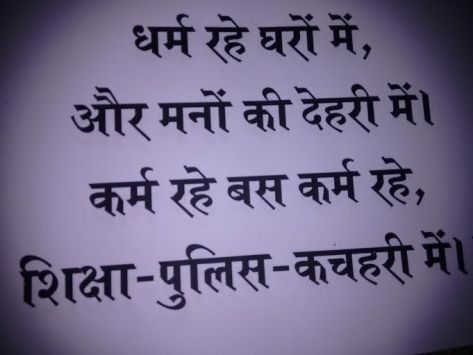 धर्म रहे घरों में,
और मनों की देहरी में।
कर्म रहे बस कर्म रहे,
शिक्षा-पुलिस-कचहरी में।